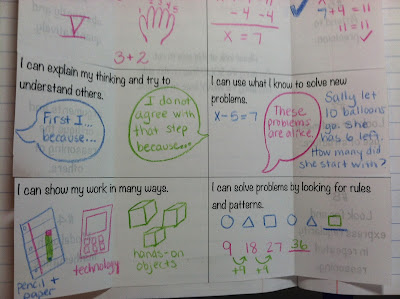 V
1 2 3 4 5
3+2
- 4 - 4
x = 7
+4 = 11
11 = 11
I can explain my thinking and try to
understand others.
First I...
because...
I do not
agree with
that step
because...
I can use what I know to solve new
problems.
x-5=7
These
problems
are alike.
Sally let
10 balloons
go. She
has 6 left.
How many did
she start with?
I can show my work in many ways.
pencil +
paper
technology
hands-on
objects
I can solve problems by looking for rules
and patterns.
9 18 27 36
+9 +9